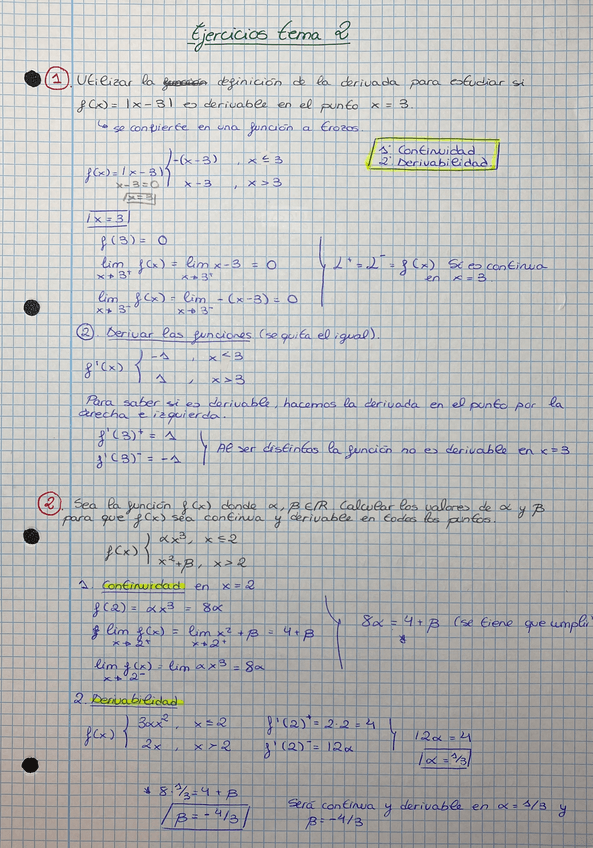 Ejercicios tema 2
1. Utilizar la función definición de la derivada para estudiar si
f(x) = |x-3| es derivable en el punto x = 3.
↳ se convierte en una función a trozos.
1º Continuidad
2º Derivabilidad
f(x) = |x-3| { -(x-3) , x ≤ 3
x-3=0 x-3 , x > 3
|x=3|
|x=3|
f(3) = 0
lim x→3⁺ f(x) = lim x→3⁺ x-3 = 0
L⁺ = L⁻ = f(x) Si es continua
en x = 3
lim x→3⁻ f(x) = lim x→3⁻ -(x-3) = 0
2. Derivar las funciones (se quita el igual).
f'(x) { -1 , x < 3
1 , x > 3
Para saber si es derivable, hacemos la derivada en el punto por la
derecha e izquierda.
f'(3)⁺ = 1
f'(3)⁻ = -1
Al ser distintas la función no es derivable en x = 3
2. Sea la función f(x) donde α, β ∈ R. Calcular los valores de α y β
para que f(x) sea continua y derivable en todos los puntos.
f(x) { αx³, x ≤ 2
x²+β, x > 2
1. Continuidad en x = 2
f(2) = αx³ = 8α
lim x→2⁺ f(x) = lim x→2⁺ x² + β = 4+β
8α = 4 + β (se tiene que umpli
*
lim x→2⁻ f(x) = lim αx³ = 8α
2. Derivabilidad
f(x) { 3αx², x = 2
2x , x > 2
f'(2)⁺ = 2·2 = 4
f'(2)⁻ = 12α
12α = 4
|α = 1/3|
* 8·1/3 = 4 + β
|β = -4/3|
Será continua y derivable en α = 1/3 y
β = -4/3